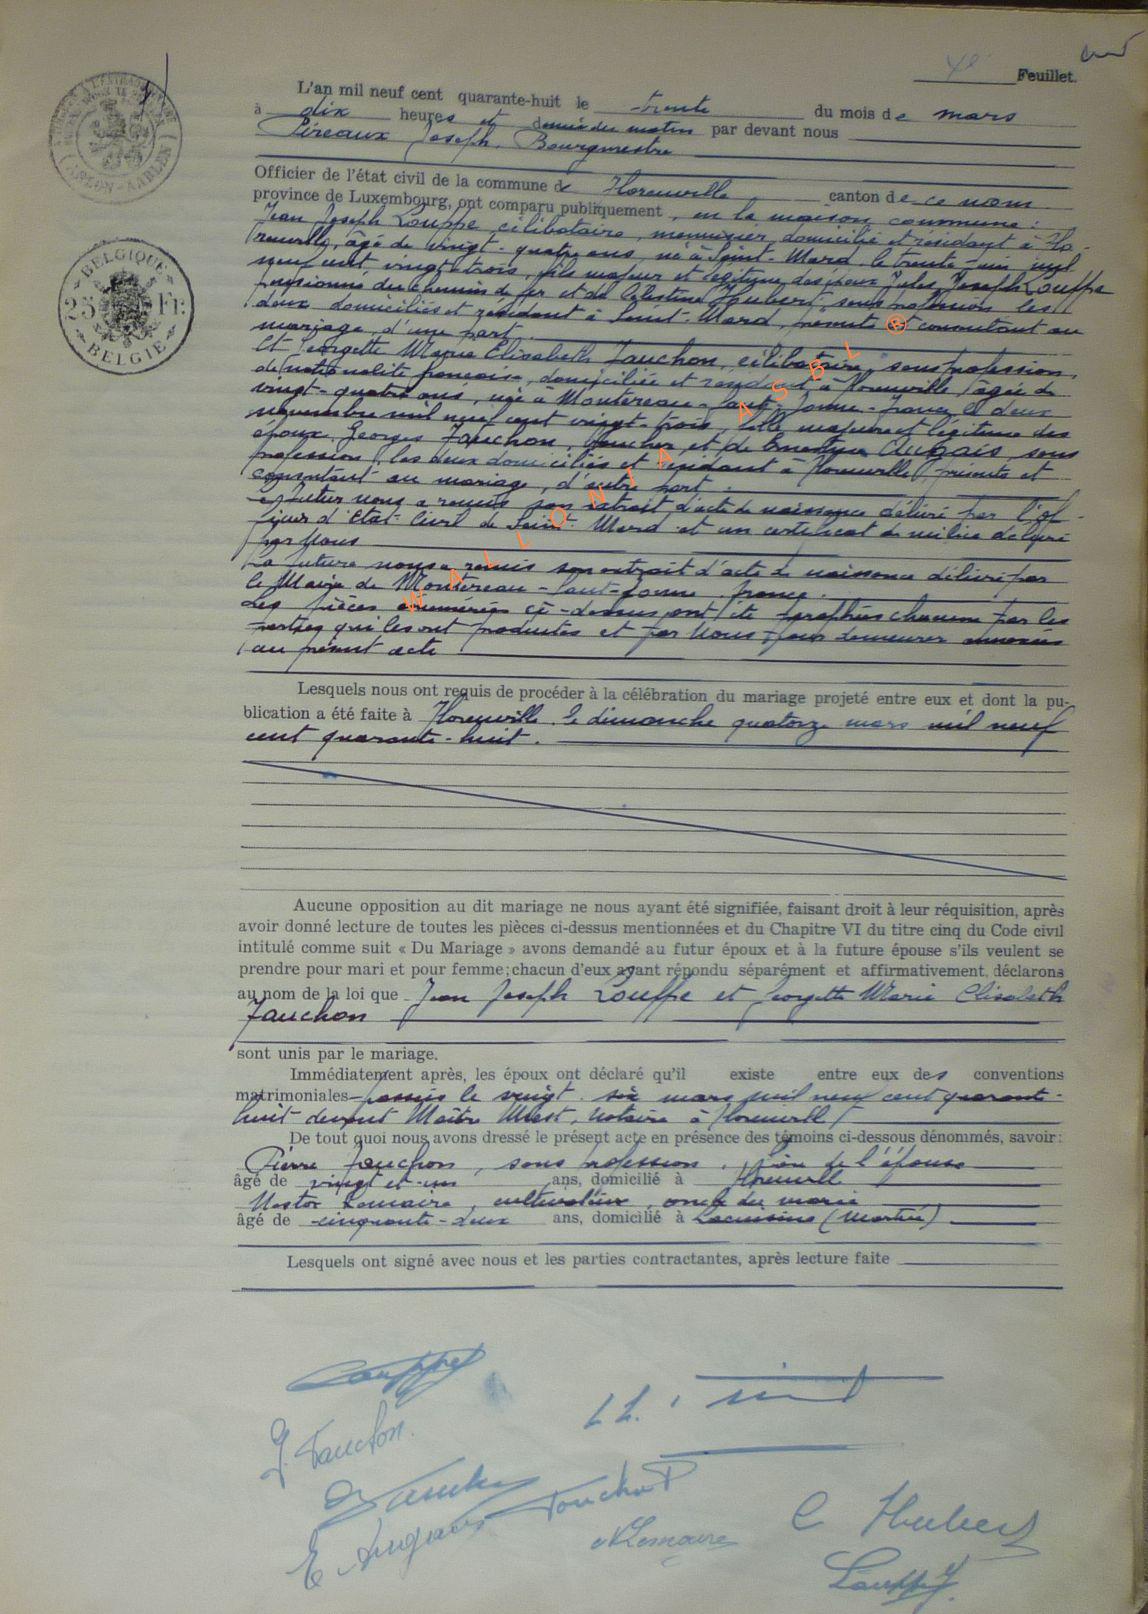 4e Feuillet.
L'an mil neuf cent quarante-huit le trente du mois de mars
à dix heures et demie du matin par devant nous
Pireaux Joseph, Bourgmestre
Officier de l'état civil de la commune de Florenville canton de ce nom
province de Luxembourg, ont comparu publiquement, en la maison commune :
Jean Joseph Louppe, célibataire, menuisier, domicilié et résidant à Flo-
renville, âgé de vingt-quatre ans, né à Saint-Mard le trente-
neuf cent vingt-trois, fils majeur et légitime des époux Jules Joseph Louppe
pensionné du chemin de fer et de Célestine Hubert, sans profession, les
deux domiciliés et résidant à Saint-Mard, présents et consentant au
mariage, d'une part
Et Georgette Marie Elisabeth Fauchon, célibataire, sans profession,
de nationalité française, domiciliée et résidant à Florenville, âgée de
vingt-quatre ans, née à Montereau-faut-Yonne-France le deux
novembre mil neuf cent vingt-trois, fille majeure et légitime des
époux Georges Fauchon, et de Ernestine Augais, sans
profession, les deux domiciliés et résidant à Florenville, présents et
consentant au mariage, d'autre part.
Le futur nous a remis son extrait d'acte de naissance délivré par l'of-
ficier d'Etat-Civil de Saint-Mard et un certificat de milice délivré
par Nous
La future nous a remis son extrait d'acte de naissance délivré par
le Maire de Montereau-faut-Yonne-France.
Les pièces énumérées ci-dessus ont été paraphées chacune par les
parties qui les ont produites et par Nous pour demeurer annexées
au présent acte
Lesquels nous ont requis de procéder à la célébration du mariage projeté entre eux et dont la pu-
blication a été faite à Florenville le dimanche quatorze mars mil neuf
cent quarante-huit.
Aucune opposition au dit mariage ne nous ayant été signifiée, faisant droit à leur réquisition, après
avoir donné lecture de toutes les pièces ci-dessus mentionnées et du Chapitre VI du titre cinq du Code civil
intitulé comme suit « Du Mariage » avons demandé au futur époux et à la future épouse s'ils veulent se
prendre pour mari et pour femme; chacun d'eux ayant répondu séparément et affirmativement, déclarons
au nom de la loi que Jean Joseph Louppe et Georgette Marie Elisabeth
Fauchon
sont unis par le mariage.
Immédiatement après, les époux ont déclaré qu'il existe entre eux des conventions
matrimoniales passées le vingt-six mars mil neuf cent quarante-
huit devant Maître notaire à Florenville
De tout quoi nous avons dressé le présent acte en présence des témoins ci-dessous dénommés, savoir:
Pierre Fauchon, sans profession, frère de l'épouse
âgé de vingt et un ans, domicilié à Florenville
Nestor Lemaire, cultivateur, oncle du marié
âgé de cinquante-deux ans, domicilié à Lacuisine (Martué)
Lesquels ont signé avec nous et les parties contractantes, après lecture faite
Louppe
G. Fauchon.
Fauchon P
E Augais
N Lemaire
C Hubert
Louppe J.
ARLON-AARLEN
BELGIQUE
25 Fr.
BELGIE
WALLONIA ASBL ®